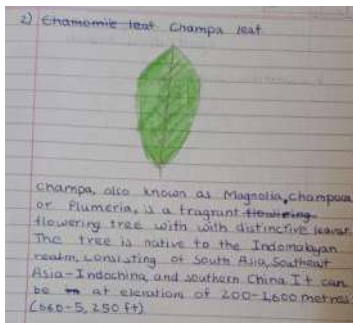 2) Chamomile leaf Champa leaf
Champa, also known as Magnolia, champaca
or Plumeria, is a fragrant flowering
flowering tree with with distinctive leaves
The tree is native to the Indomalayan
realm, consisting of South Asia, Southeast
Asia-Indochina, and southern China It can
be at elevation of 200-1,600 metres
(660-5,250 ft)